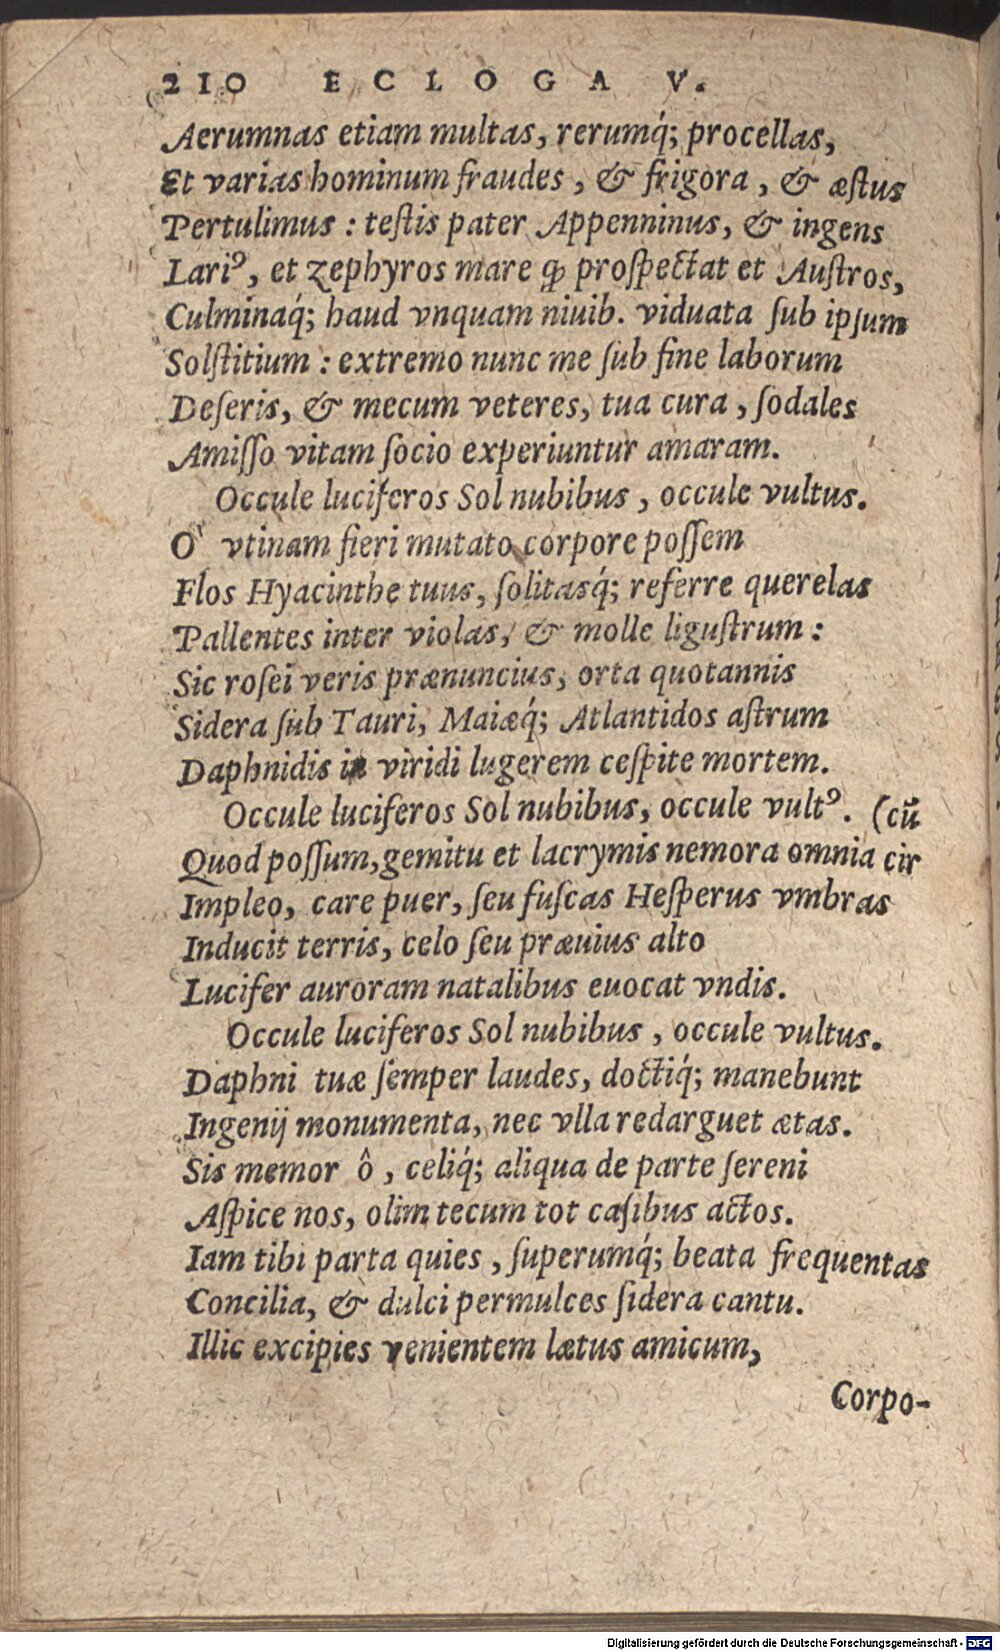 210 ECLOGA V.
Aerumnas etiam multas, rerumq́; procellas,
Et varias hominum fraudes, & frigora, & æſtus
Pertulimus: teſtis pater Appenninus, & ingens
Lariꝰ, et zephyros mare ꝙ proſpectat et Auſtros,
Culminaq́; haud vnquam niuib. viduata ſub ipſum
Solſtitium: extremo nunc me ſub fine laborum
Deſeris, & mecum veteres, tua cura, ſodales
Amiſſo vitam ſocio experiuntur amaram.
Occule luciferos Sol nubibus, occule vultus.
O' vtinam fieri mutato corpore poſſem
Flos Hyacinthe tuus, ſolitasq́; referre querelas
Pallentes inter violas, & molle liguſtrum:
Sic roſei veris prænuncius, orta quotannis
Sidera ſub Tauri, Maiæq́; Atlantidos aſtrum
Daphnidis in viridi lugerem ceſpite mortem.
Occule luciferos Sol nubibus, occule vultꝰ. (cū
Quod poſſum, gemitu et lacrymis nemora omnia cir
Impleo, care puer, ſeu fuſcas Heſperus vmbras
Inducit terris, celo ſeu præuius alto
Lucifer auroram natalibus euocat vndis.
Occule luciferos Sol nubibus, occule vultus.
Daphni tuæ ſemper laudes, doctiq́; manebunt
Ingenij monumenta, nec vlla redarguet ætas.
Sis memor ô, celiq́; aliqua de parte ſereni
Aſpice nos, olim tecum tot caſibus actos.
Iam tibi parta quies, ſuperumq́; beata frequentas
Concilia, & dulci permulces ſidera cantu.
Illic excipies venientem lætus amicum,
Corpo-
Digitalisierung gefördert durch die Deutsche Forschungsgemeinschaft - DFG